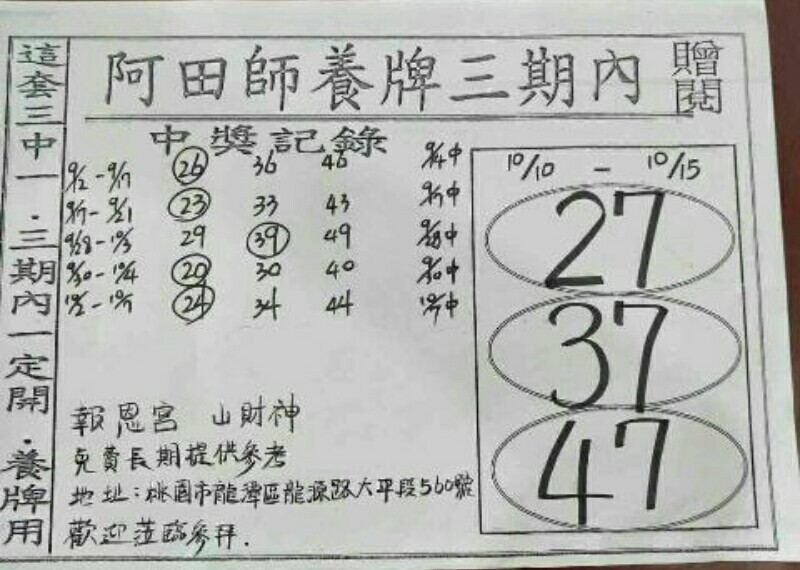 阿田師養牌三期內
贈閱
這套三中一．三期內一定開．養牌用
中獎記錄
9/12 - 9/17 26 36 46 9/14中
9/17 - 9/21 23 33 43 9/19中
9/28 - 10/3 29 39 49 9/28中
9/30 - 10/4 20 30 40 9/30中
24 34 44
10/10 - 10/15
27
37
47
報恩宮 山財神
免費長期提供參考
地址：桃園市龍潭區龍源路大平段560號
歡迎蒞臨參拜．